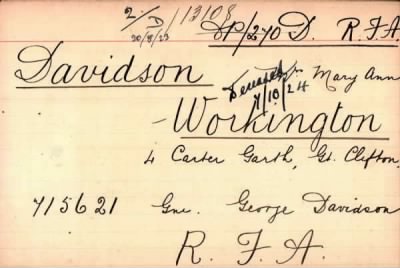 2/D/13108
30/8/23
SP/270 D. R.F.A
Davidson Mrs Mary Ann
Deceased
7/10/24
Workington
4 Carter Garth, Gt. Clifton
715621 Gnr. George Davidson
R. F. A.